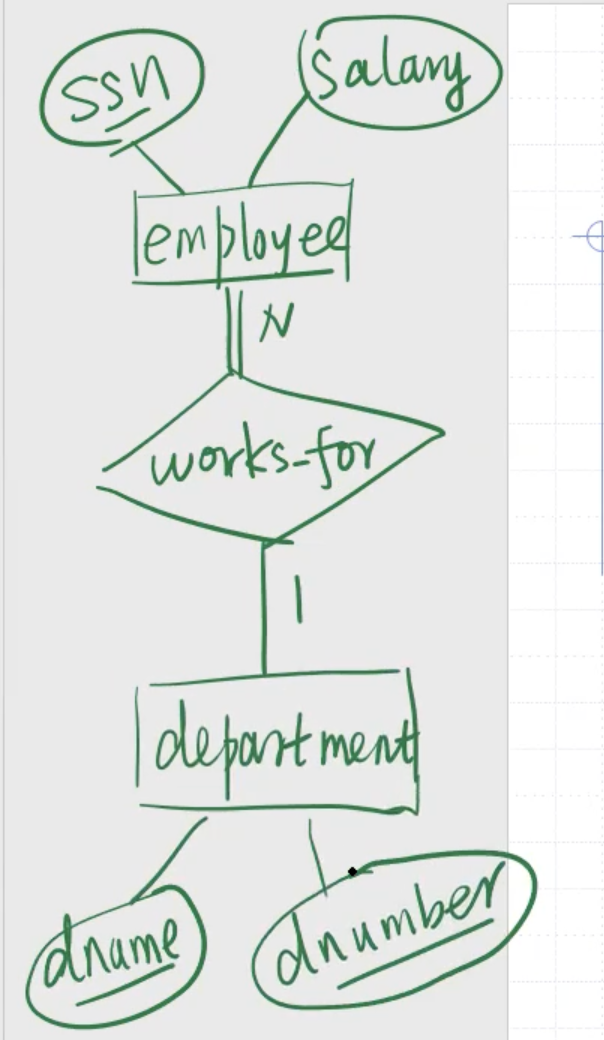 ssn
Salary
employee
N
works-for
1
department
dname
dnumber